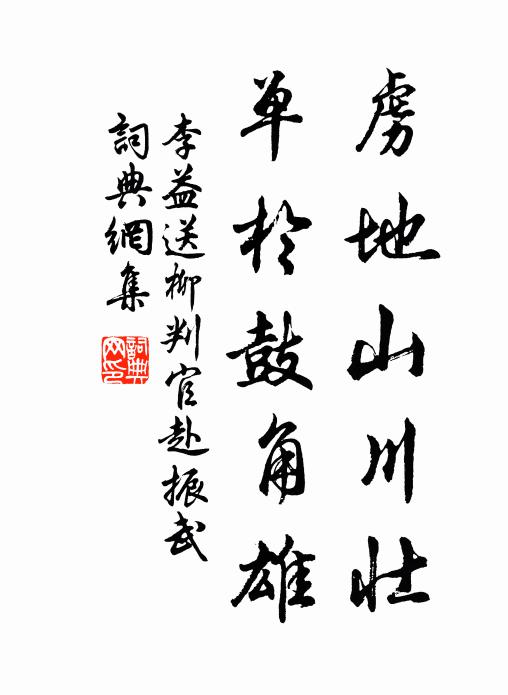 虜地山川壮
单於鼓角雄
李益送柳判官赴振武
詞典網集
詞典网印